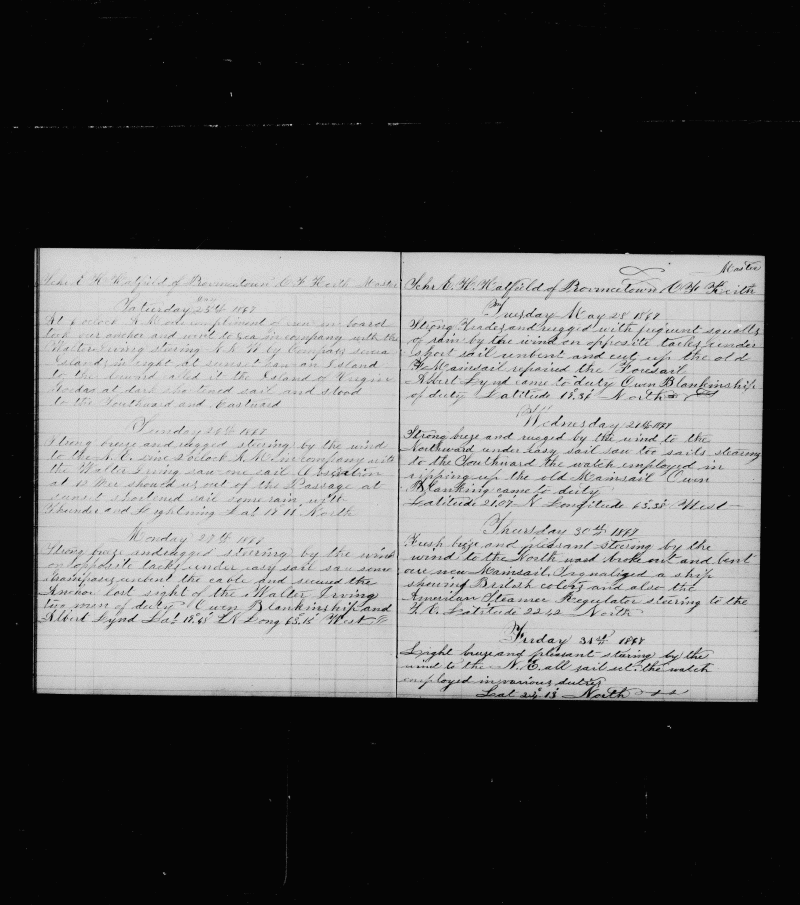 Schr E. H. Hatfield of Provincetown C F Keith Master
Saturday May 25th 1889
At 6 oclock A.M. our compliment of men on board
took our anchor and went to sea in company with the
Walter Irving Stearing N. by Compass
Islands in sight at sunset saw an Island
to the leward called it the Island of
at dark shortened sail and stood
to the Southward and Eastward
Sunday 26th 1889
Strong breeze and rugged steering by the wind
to the N.E. oclock A.M. in company with
the Walter Irving saw one sail
at 12 should us out of the Passage at
sunset shortened sail some rain with
thunder and lightning Lat 18.18 North
Monday 27th 1889
Strong breeze and rugged steering by the wind
on opposite tacks under easy sail saw some
unbent the cable and secured the
Anchor lost sight of the Walter Irving
two men of duty Owen Blankinship and
Albert Lynd Lat 18.48 N Long 63.15 West
Master
Schr E. H. Hatfield of Provincetown C F Keith
Tuesday May 28 1889
Strong Trades and rugged with frequent squalls
of rain by the wind on opposite tacks under
short sail unbent and cut up the old
Mainsail repaired the Foresail
Albert Lynd came to duty Owen Blankinship
of duty Latitude 19.36 North
Wednesday 29th 1889
Strong breeze and rugged by the wind to the
Northward under easy sail saw too sails stearing
to the Southward the watch employed in
ripping up the old Mainsail Owen
Blanking came to duty
Latitude 21.07 N Longitude 63.38 West
Thursday 30th 1889
Fresh breeze and pleasant stearing by the
wind to the North ward broke out and bent
our new Mainsail. Signalized a ship
showing British colors and also the
American Steamer Regulator stearing to the
S.E. Latitude 22.42 North
Friday 31st 1889
Light breeze and pleasant staring by the
wind to the N.E. all sail set the watch
employed in various duties
Lat 24.13 North